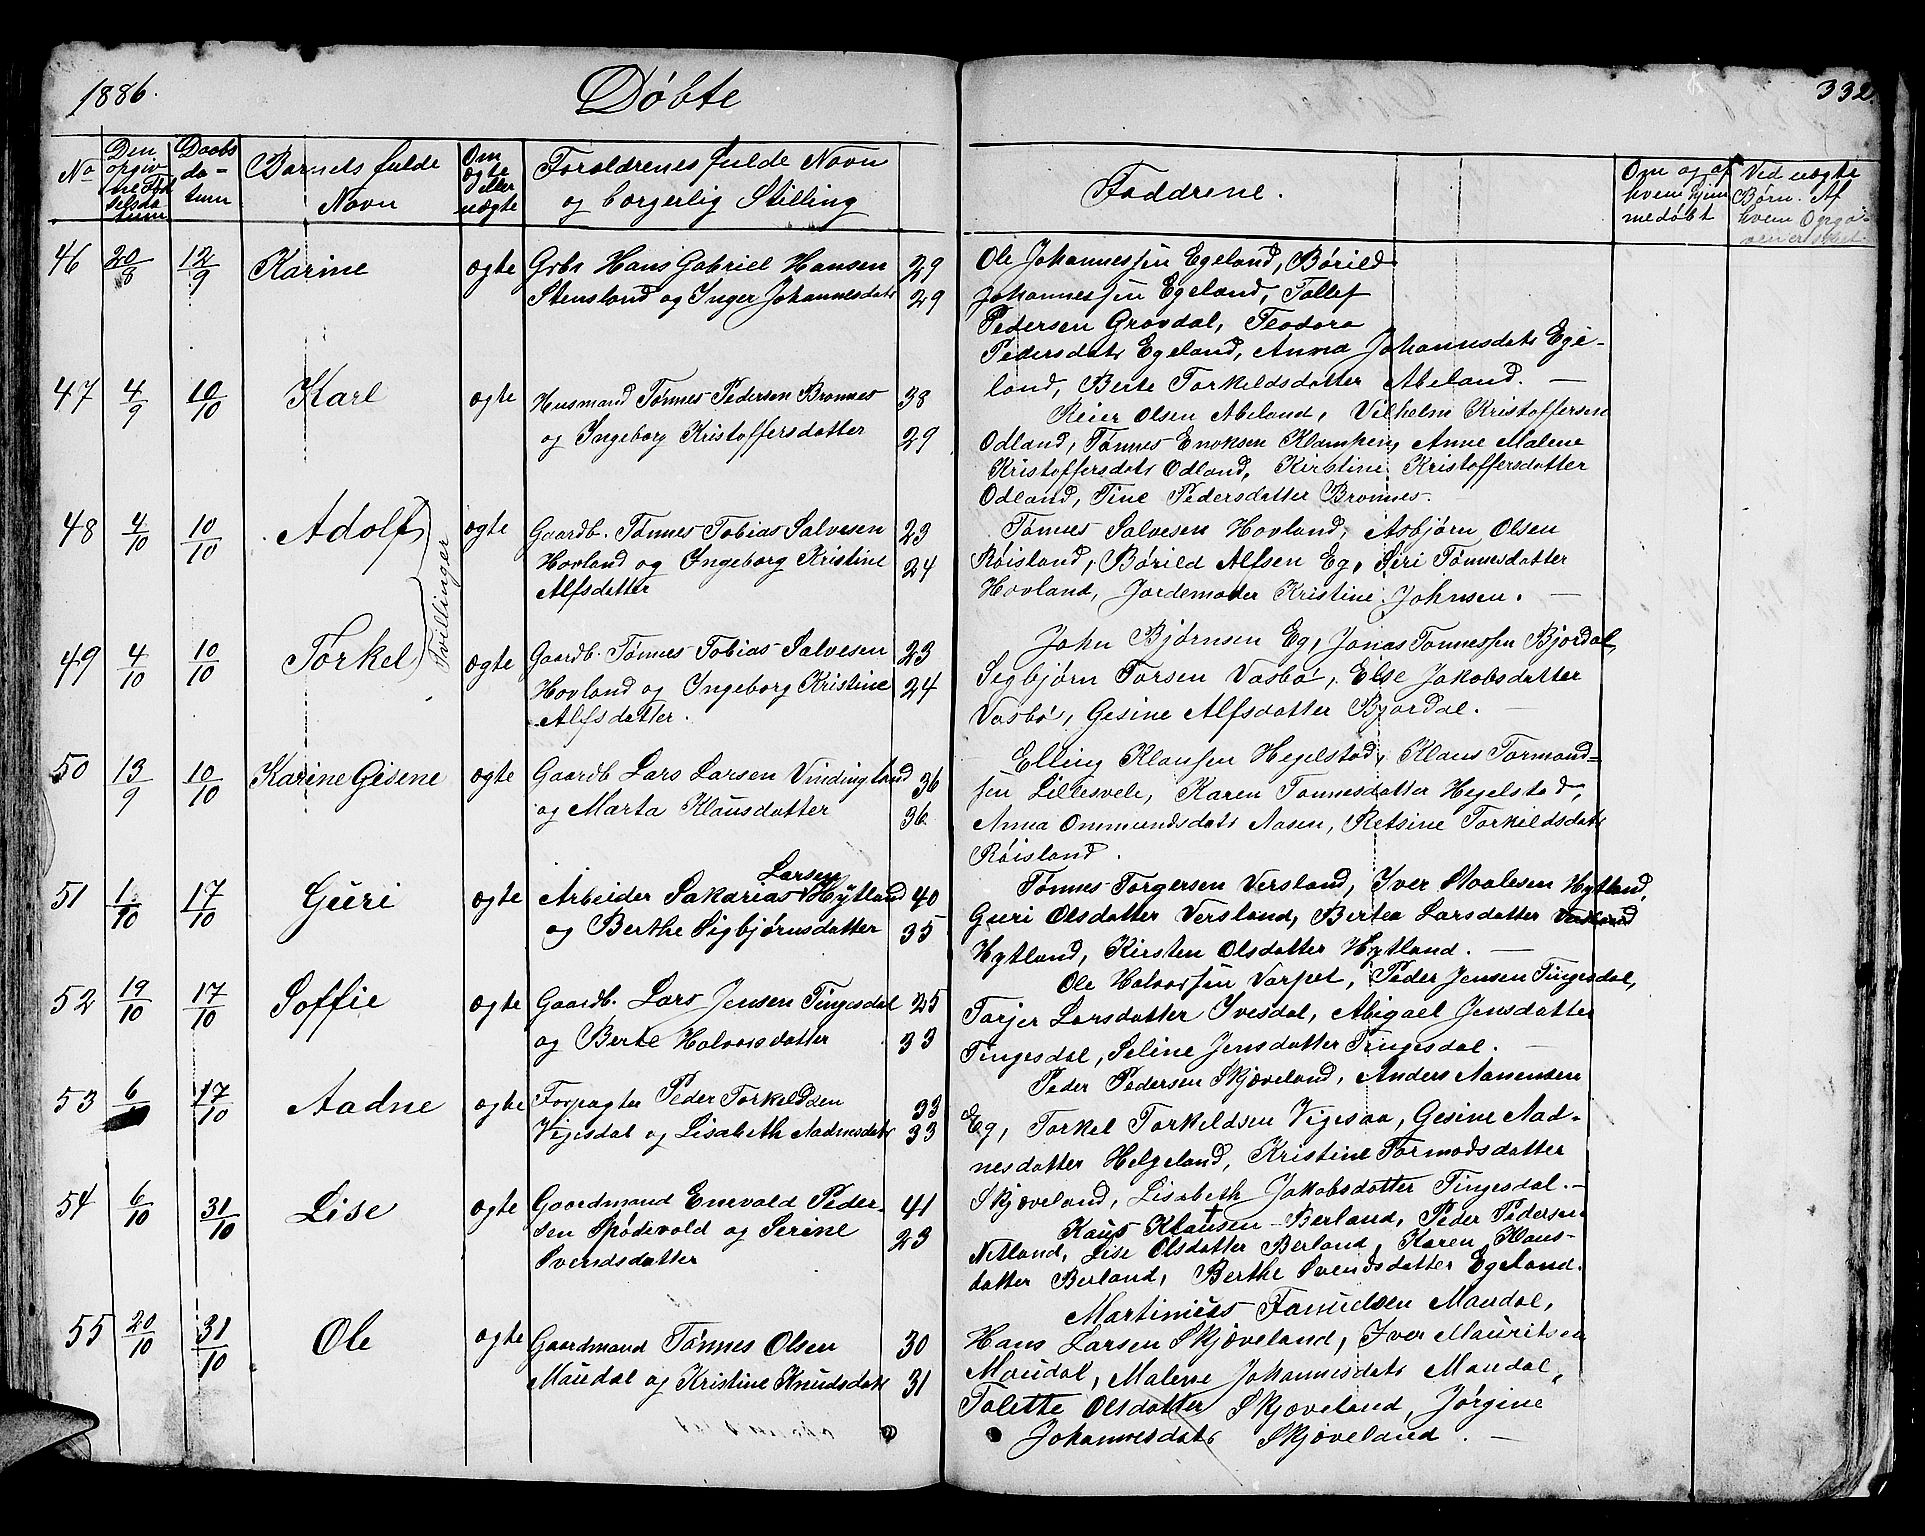 1886.
Døbte
332.
No
Den
opgiv
ne Fød
selsda
tum
Daabs
da-
tum
Barnets fulde
Navn
Om
ægte
eller
uægte
Forældrenes fulde Navn
og borgerlig Stilling
Faddrene.
Om og af
hvem hjem
medøbt
Ved uægte
Børn. Af
hvem Opga-
46 20/8 12/9 Karine ægte Grbr Hans Gabriel Hansen 29
Stensland og Inger Johannesdatr 29
Ole Johannessen Egeland, Børild
Johannessen Egeland, Tollef
Pedersen Gravdal, Teodora
Pedersdatr Egeland, Anna Johannsdatr Ege-
land, Berte Torkeldsdatter Abeland. —
47 4/9 10/10 Karl ægte Husmand Tønnes Pedersen Bronnes 38
og Ingeborg Kristoffersdatter 29
Reier Olsen Abeland, Vilhelm Kristoffersen
Odland, Tønnes Enoksen Klampen, Anne Malene
Kristoffersdatr Odland, Kirstine Kristoffersdatter
Odland, Tine Pedersdatter Bronnes.
48 4/10 10/10 Adolf ægte Gaardb. Tønnes Tobias Salvesen 23
Hovland og Ingeborg Kristine 24
Alfsdatter
Tvillinger
Tønnes Salvesen Hovland, Asbjørn Olsen
Røisland, Børild Alfsen Eg, Siri Tønnesdatter
Hovland, Jordemoder Kristine Johnsen. —
49 4/10 10/10 Torkel ægte Gaardb. Tønnes Tobias Salvesen 23
Hovland og Ingeborg Kristine 24
Alfsdatter.
John Bjørnsen Eg, Jonas Tønnessen Bjordal,
Segbjørn Torsen Vasbø, Else Jakobsdatter
Vasbø, Gesine Alfsdatter Bjordal. —
50 13/9 10/10 Karine Gisene ægte Gaardb Lars Larsen Vindingland 36
og Marta Klausdatter 36
Elling Klausen Hegelstad, Klaus Tormond=
sen Lillesvele, Karen Tønnesdatter Hegelstad,
Anna Ommundsdatr Aasen, Retsine Torkildsdatr
Røisland.
51 1/10 17/10 Guri ægte Arbeider Sakarias Larsen Hytland 40
og Berthe Sigbjørnsdatter 35
Tønnes Torgersen Versland, Iver Hoolesen Hytland,
Guri Olsdatter Versland, Bertea Larsdatter
Hytland, Kirsten Olsdatter Hytland. —
52 19/10 17/10 Soffie ægte Gaardb. Lars Jensen Tingesdal 25
og Berte Halvorsdatter 33
Ole Halvorsen Varpet, Peder Jensen Tingesdal,
Tarjer Larsdatter Ivesdal, Abigael Jensdatter
Tingesdal, Seline Jensdatter Tingesdal. —
53 6/ 17/10 Aadne ægte Forpagter Peder Torkeldsen 33
Vigesdal og Lisabeth Aadnesdatr 33
Peder Pedersen Skjæveland, Anders Aanensen
Eg, Torkel Torkeldsen Vigesaa, Gesine Aad-
nesdatter Helgeland, Kristine Tormodsdatter
Skjæveland, Lisabeth Jakobsdatter Tingesdal. —
54 6/10 31/10 Lise ægte Gaardmand Enevald Peder- 41
sen Spødevold og Serine 23
Svendsdatter
Kaus Klausen Berland, Peder Pedersen
Netland, Lise Olsdatter Berland, Karen Klaus-
datter Berland, Berthe Svendsdatter Egeland.
55 20/10 31/10 Ole ægte Gaardmand Tønnes Olsen 30
Maudal og Kristine Knudsdatr 31
Martinius Samuelsen Maudal,
Hans Larsen Skjæveland, Iver Mauritsen
Maudal, Malene Johannesdatr Maudal,
Talette Olsdatter Skjæveland, Jørgine
Johannesdatr Skjæveland. —